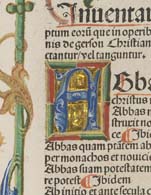 Inuentau
ptum eorū que in operib
nis de gerson Christian
cantur / vel tanguntur.
Abba
christus
struit
Abbas nō
Abbas man
per monachos et nouici
Abbas suam potestatem
re potest Ibidem
Ab inicio et ante secula